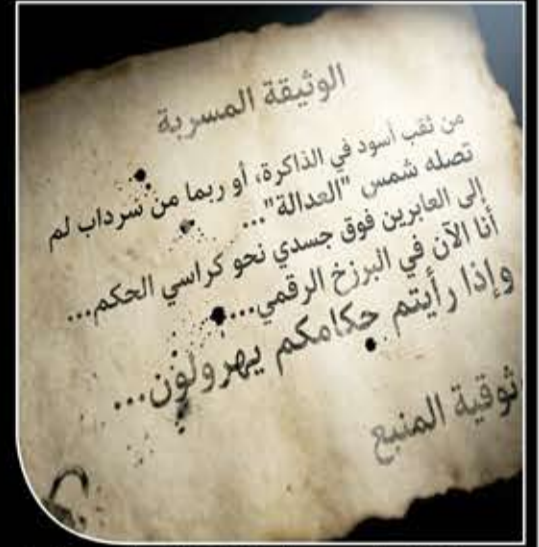 الوثيقة المسربة
من ثقب أسود في الذاكرة، أو ربما من سرداب لم
تصله شمس "العدالة"...
إلى العابرين فوق جسدي نحو كراسي الحكم...
أنا الآن في البرزخ الرقمي...
وإذا رأيتم حكامكم يهرولون...
ثوقية المنبع